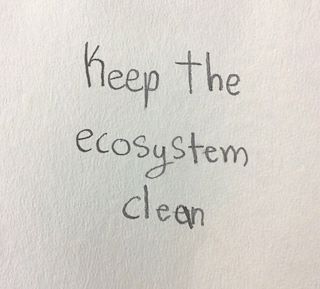 Keep the
ecosystem
clean